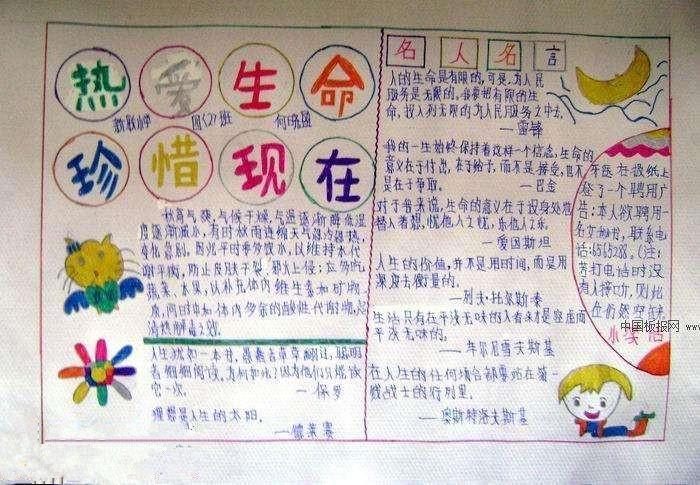 热爱生命
新教小学 四(2)班 何晓圆
珍惜现在
秋高气爽,气候干燥,气温逐渐降低湿
度逐渐减小,有时秋雨连绵天气忽冷忽热,
变化急剧。因此平时要多饮水,以维持水代
谢平衡,防止皮肤干裂,邪火上侵;应多吃
蔬菜、水果,以补充体内维生素和矿物
质,同时中和体内多余的酸性代谢物,
清热解毒之效。
人生犹如一本书,愚蠢者草草翻过,聪明
者细细阅读。为何如此?因为他们只能读
它一次。 —保罗
理想是人生的太阳。
—德莱赛
名人名言
人的生命是有限的,可是,为人民
服务是无限的,我要把有限的生
命,投入到无限的为人民服务之中去。
—雷锋
我的一生始终保持着这样一个信念,生命的
意义在于付出,在于给予,而不是接受,也不
是在于争取。 —巴金
对于我来说,生命的意义在于设身处地
替人着想,忧他人之忧,乐他人之乐。
—爱因斯坦
人生的价值,并不是用时间,而是用
深度去衡量的。
—列夫·托尔斯泰
生活只有在平淡无味的人看来才是空虚而
平淡无味的。
—车尔尼雪夫斯基
在人生的任何场合都要站在第一
线战士的行列里。
—奥斯特洛夫斯基
牙医在报纸上
登了一个聘用广
告:本人欲聘用一
名女秘书,联系电
话:6565288。(注:
若打电话时没
有人接听,则此
位仍然空缺
小笑话
中国板报网
www.